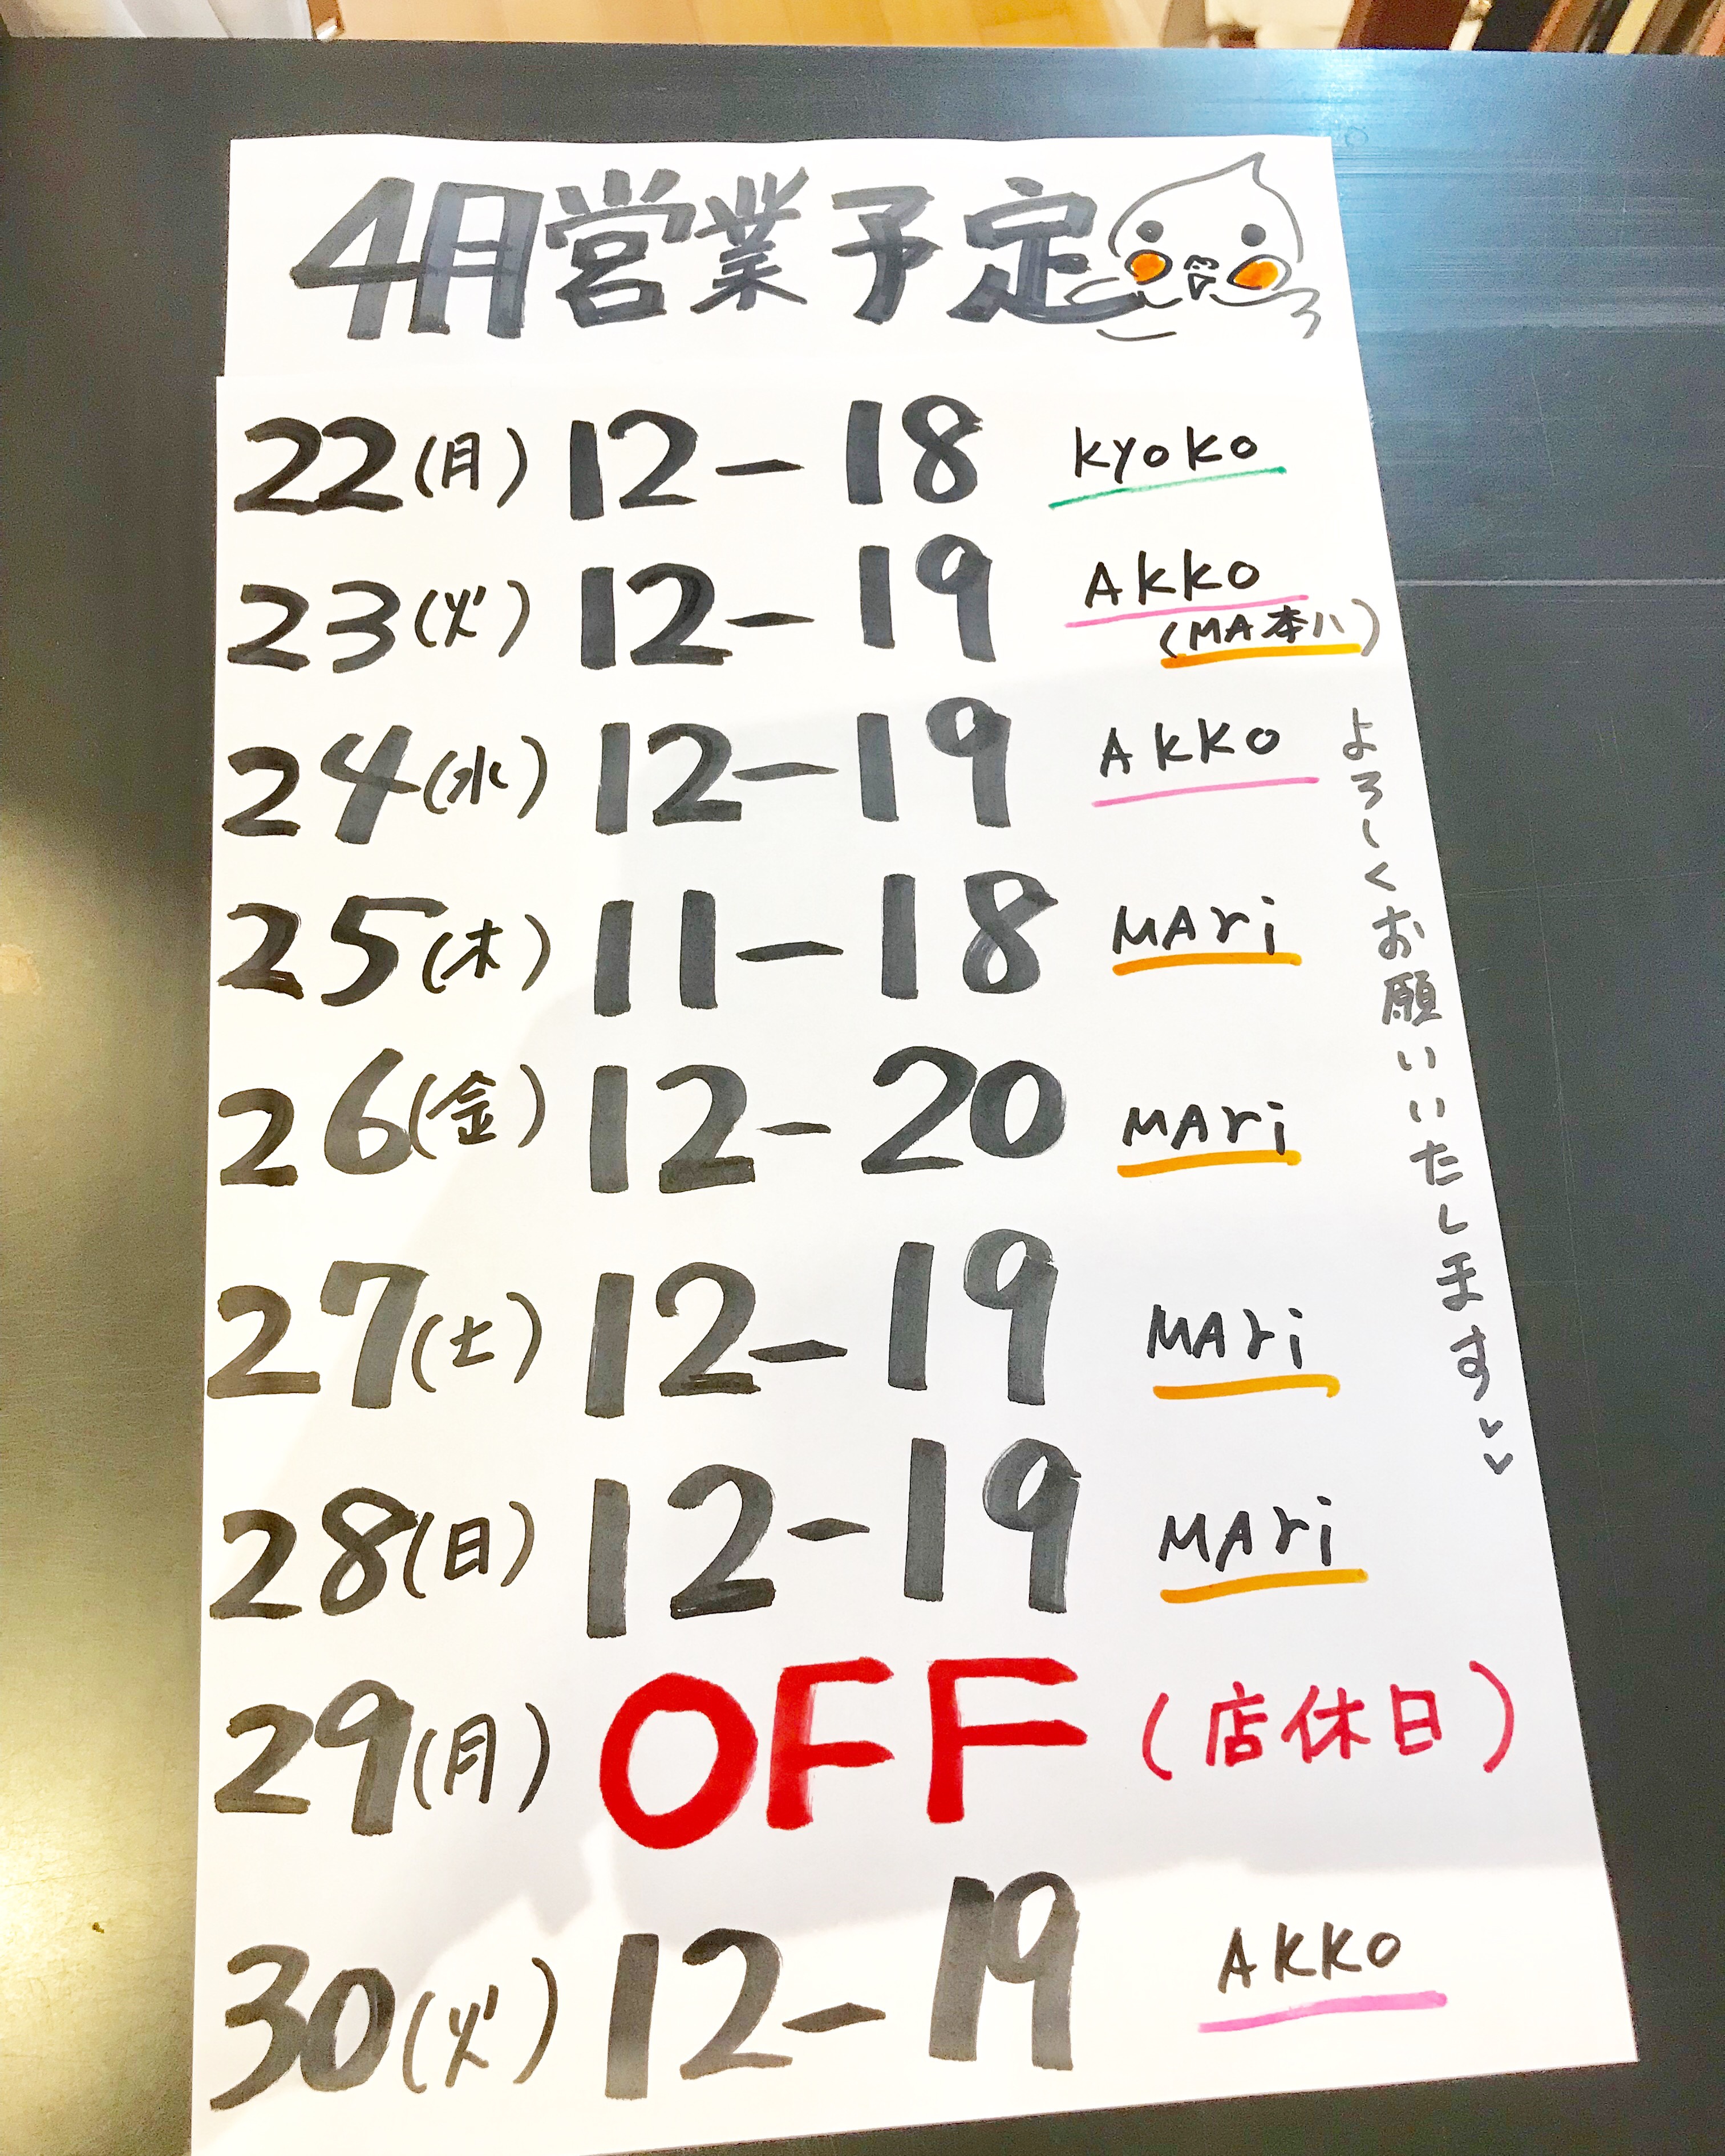 4月営業予定
22(月) 12-18 kyoko
23(火) 12-19 Akko
(MA本八)
24(水) 12-19 Akko
25(木) 11-18 MAri
26(金) 12-20 MAri
27(土) 12-19 MAri
28(日) 12-19 MAri
29(月) OFF (店休日)
30(火) 12-19 AKKO
よろしくお願いいたします♡♡